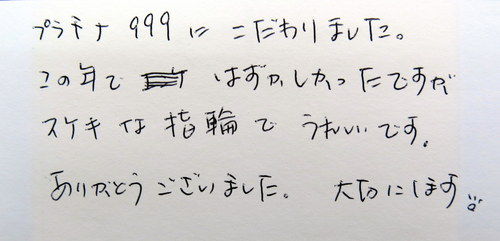 プラチナ 999 に こだわりました。
この年で はずかしかったですが
ステキな指輪で うれしいです。
ありがとうございました。 大切にします